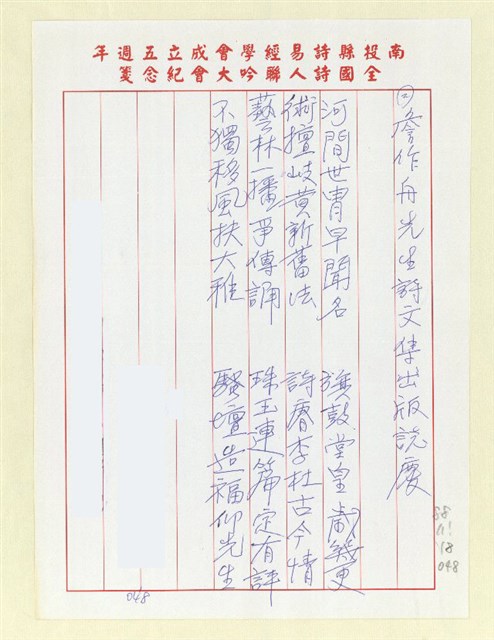 南投縣詩易經學會成立五週年
全國詩人聯吟大會紀念箋
詹作舟先生詩文集出版誌慶
河間世胄早聞名 旗鼓堂皇歲幾更
術擅岐黃新舊法 詩賡李杜古今情
藝林一播爭傳誦 珠玉連篇定有評
不獨移風扶大雅 騷壇造福仰先生
88
11!
18
048
048